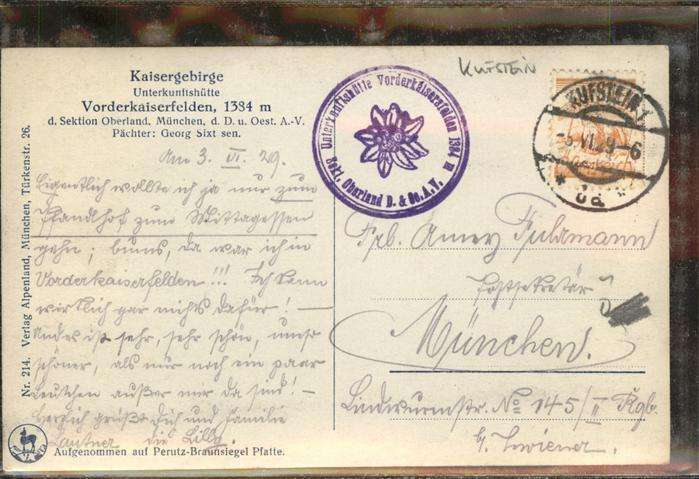 KUFSTEIN
Kaisergebirge
Unterkunftshütte
Vorderkaiserfelden, 1384 m
d. Sektion Oberland, München, d. D. u. Oest. A.-V.
Pächter: Georg Sixt sen.
Unterkunftshütte Vorderkaiserfelden 1384 m
Sekt. Oberland D. & Oe. A. V.
KUFSTEIN 1
VI. 29-6
Am 3. VI. 29.
Eigentlich wollte ich ja nur zum
Pfandlhof zum Mittagessen
gehn; bums, da war ich in
Vorderkaiserfelden!!! Ich kann
wirklich gar nichts dafür! —
Andes ist sehr, sehr schön, umso
schöner, als nur noch ein paar
Leutchen außer mir da sind! —
Herzlich grüßt Dich und Familie
Lautner die Lilly.
Frl. Anny Fuhrmann
Postsekretär
München.
Lindwurmstr. No 145/II Rgb.
Nr. 214. Verlag Alpenland, München, Türkenstr. 26.
Aufgenommen auf Perutz-Braunsiegel Platte.